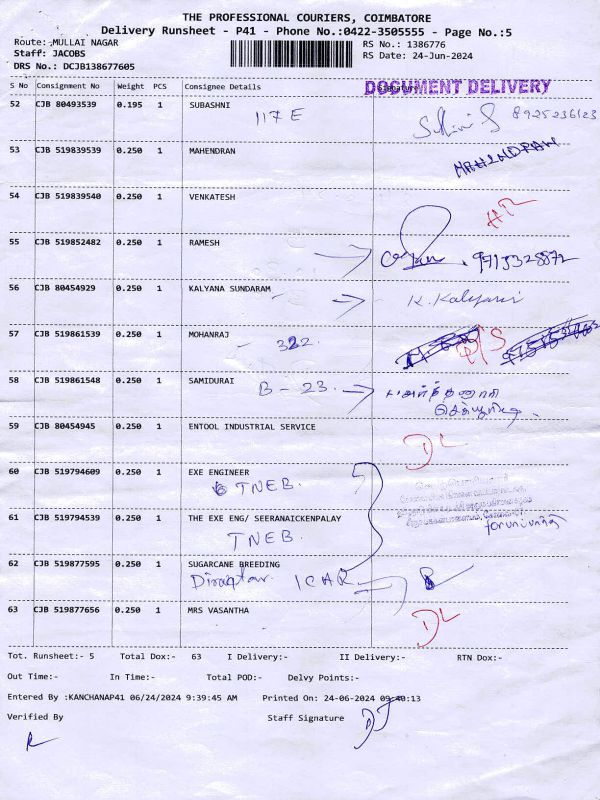 THE PROFESSIONAL COURIERS, COIMBATORE
Delivery Runsheet - P41 - Phone No.:0422-3505555 - Page No.:5
Route: MULLAI NAGAR
Staff: JACOBS
DRS No.: DCJB138677605
RS No.: 1386776
RS Date: 24-Jun-2024
S No Consignment No Weight PCS Consignee Details
DOCUMENT DELIVERY
52 CJB 80493539 0.195 1 SUBASHNI
117 E 8925236123
53 CJB 519839539 0.250 1 MAHENDRAN
MAHENDRAN
54 CJB 519839540 0.250 1 VENKATESH
55 CJB 519852482 0.250 1 RAMESH
56 CJB 80454929 0.250 1 KALYANA SUNDARAM
K. Kalyani
57 CJB 519861539 0.250 1 MOHANRAJ
- 322.
58 CJB 519861548 0.250 1 SAMIDURAI
B - 23.
59 CJB 80454945 0.250 1 ENTOOL INDUSTRIAL SERVICE
DL
60 CJB 519794609 0.250 1 EXE ENGINEER
TNEB.
61 CJB 519794539 0.250 1 THE EXE ENG/ SEERANAICKENPALAY
TNEB.
62 CJB 519877595 0.250 1 SUGARCANE BREEDING
ICAR
63 CJB 519877656 0.250 1 MRS VASANTHA
DL
Tot. Runsheet:- 5 Total Dox:- 63 I Delivery:- II Delivery:- RTN Dox:-
Out Time:- In Time:- Total POD:- Delvy Points:-
Entered By :KANCHANAP41 06/24/2024 9:39:45 AM Printed On: 24-06-2024 09:40:13
Verified By Staff Signature